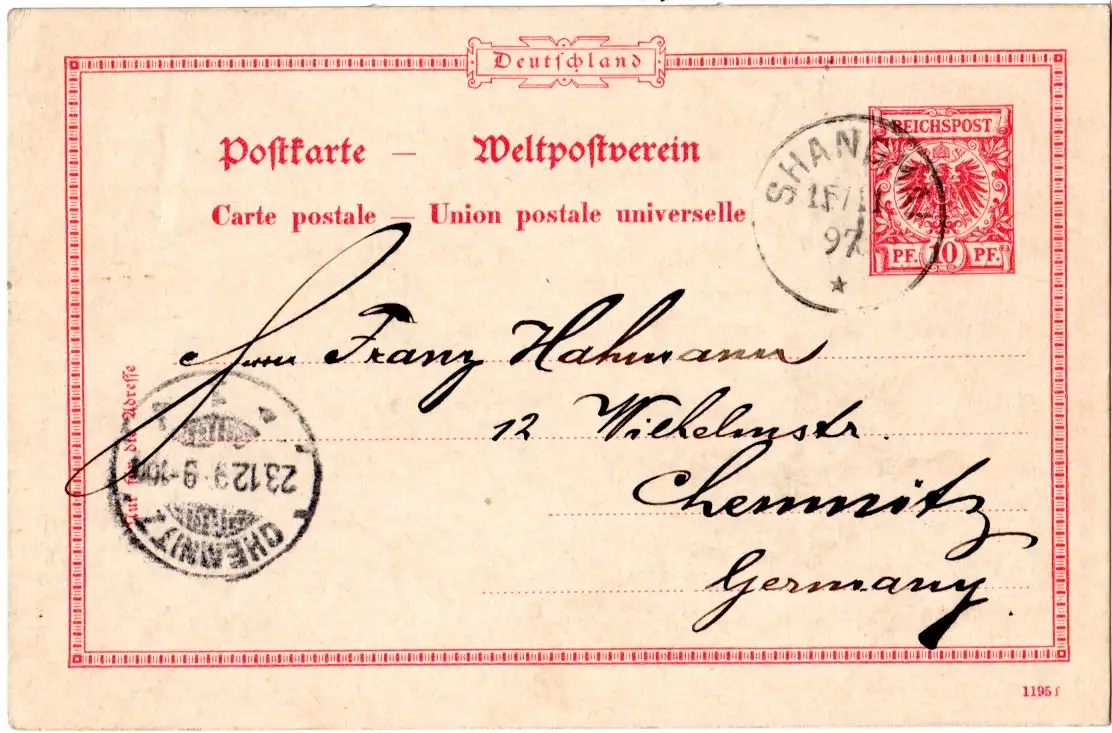 Deutschland
Postkarte — Weltpostverein
Carte postale — Union postale universelle
REICHSPOST
PF. 10 PF.
SHANG
15/11
97
Herrn Franz Hahmann
12 Wilhelmstr.
Chemnitz
Germany
Nur für die Adresse
CHEMNITZ
23.12.9 9-10
1195 f